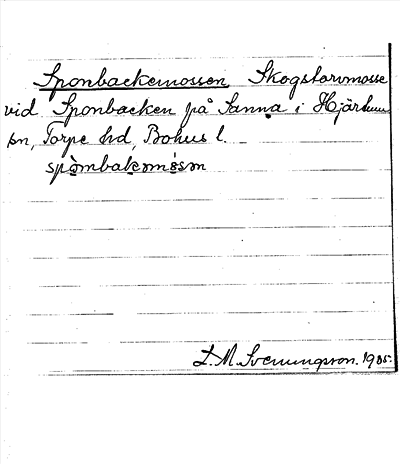 Sponbackemossen, Skogstorvmosse
vid Sponbacken på Sanna i Hjärtum
sn, Torpe hd, Bohus l.
L. M. Svenungsson. 1905.